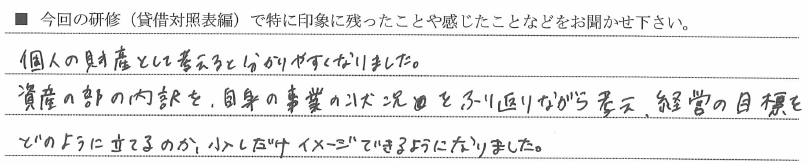 ■ 今回の研修（貸借対照表編）で特に印象に残ったことや感じたことなどをお聞かせ下さい。
個人の財産として考えると分かりやすくなりました。
資産の部の内訳を、自身の事業の状況をふり返りながら考え、経営の目標を
どのように立てるのか、少しだけイメージできるようになりました。